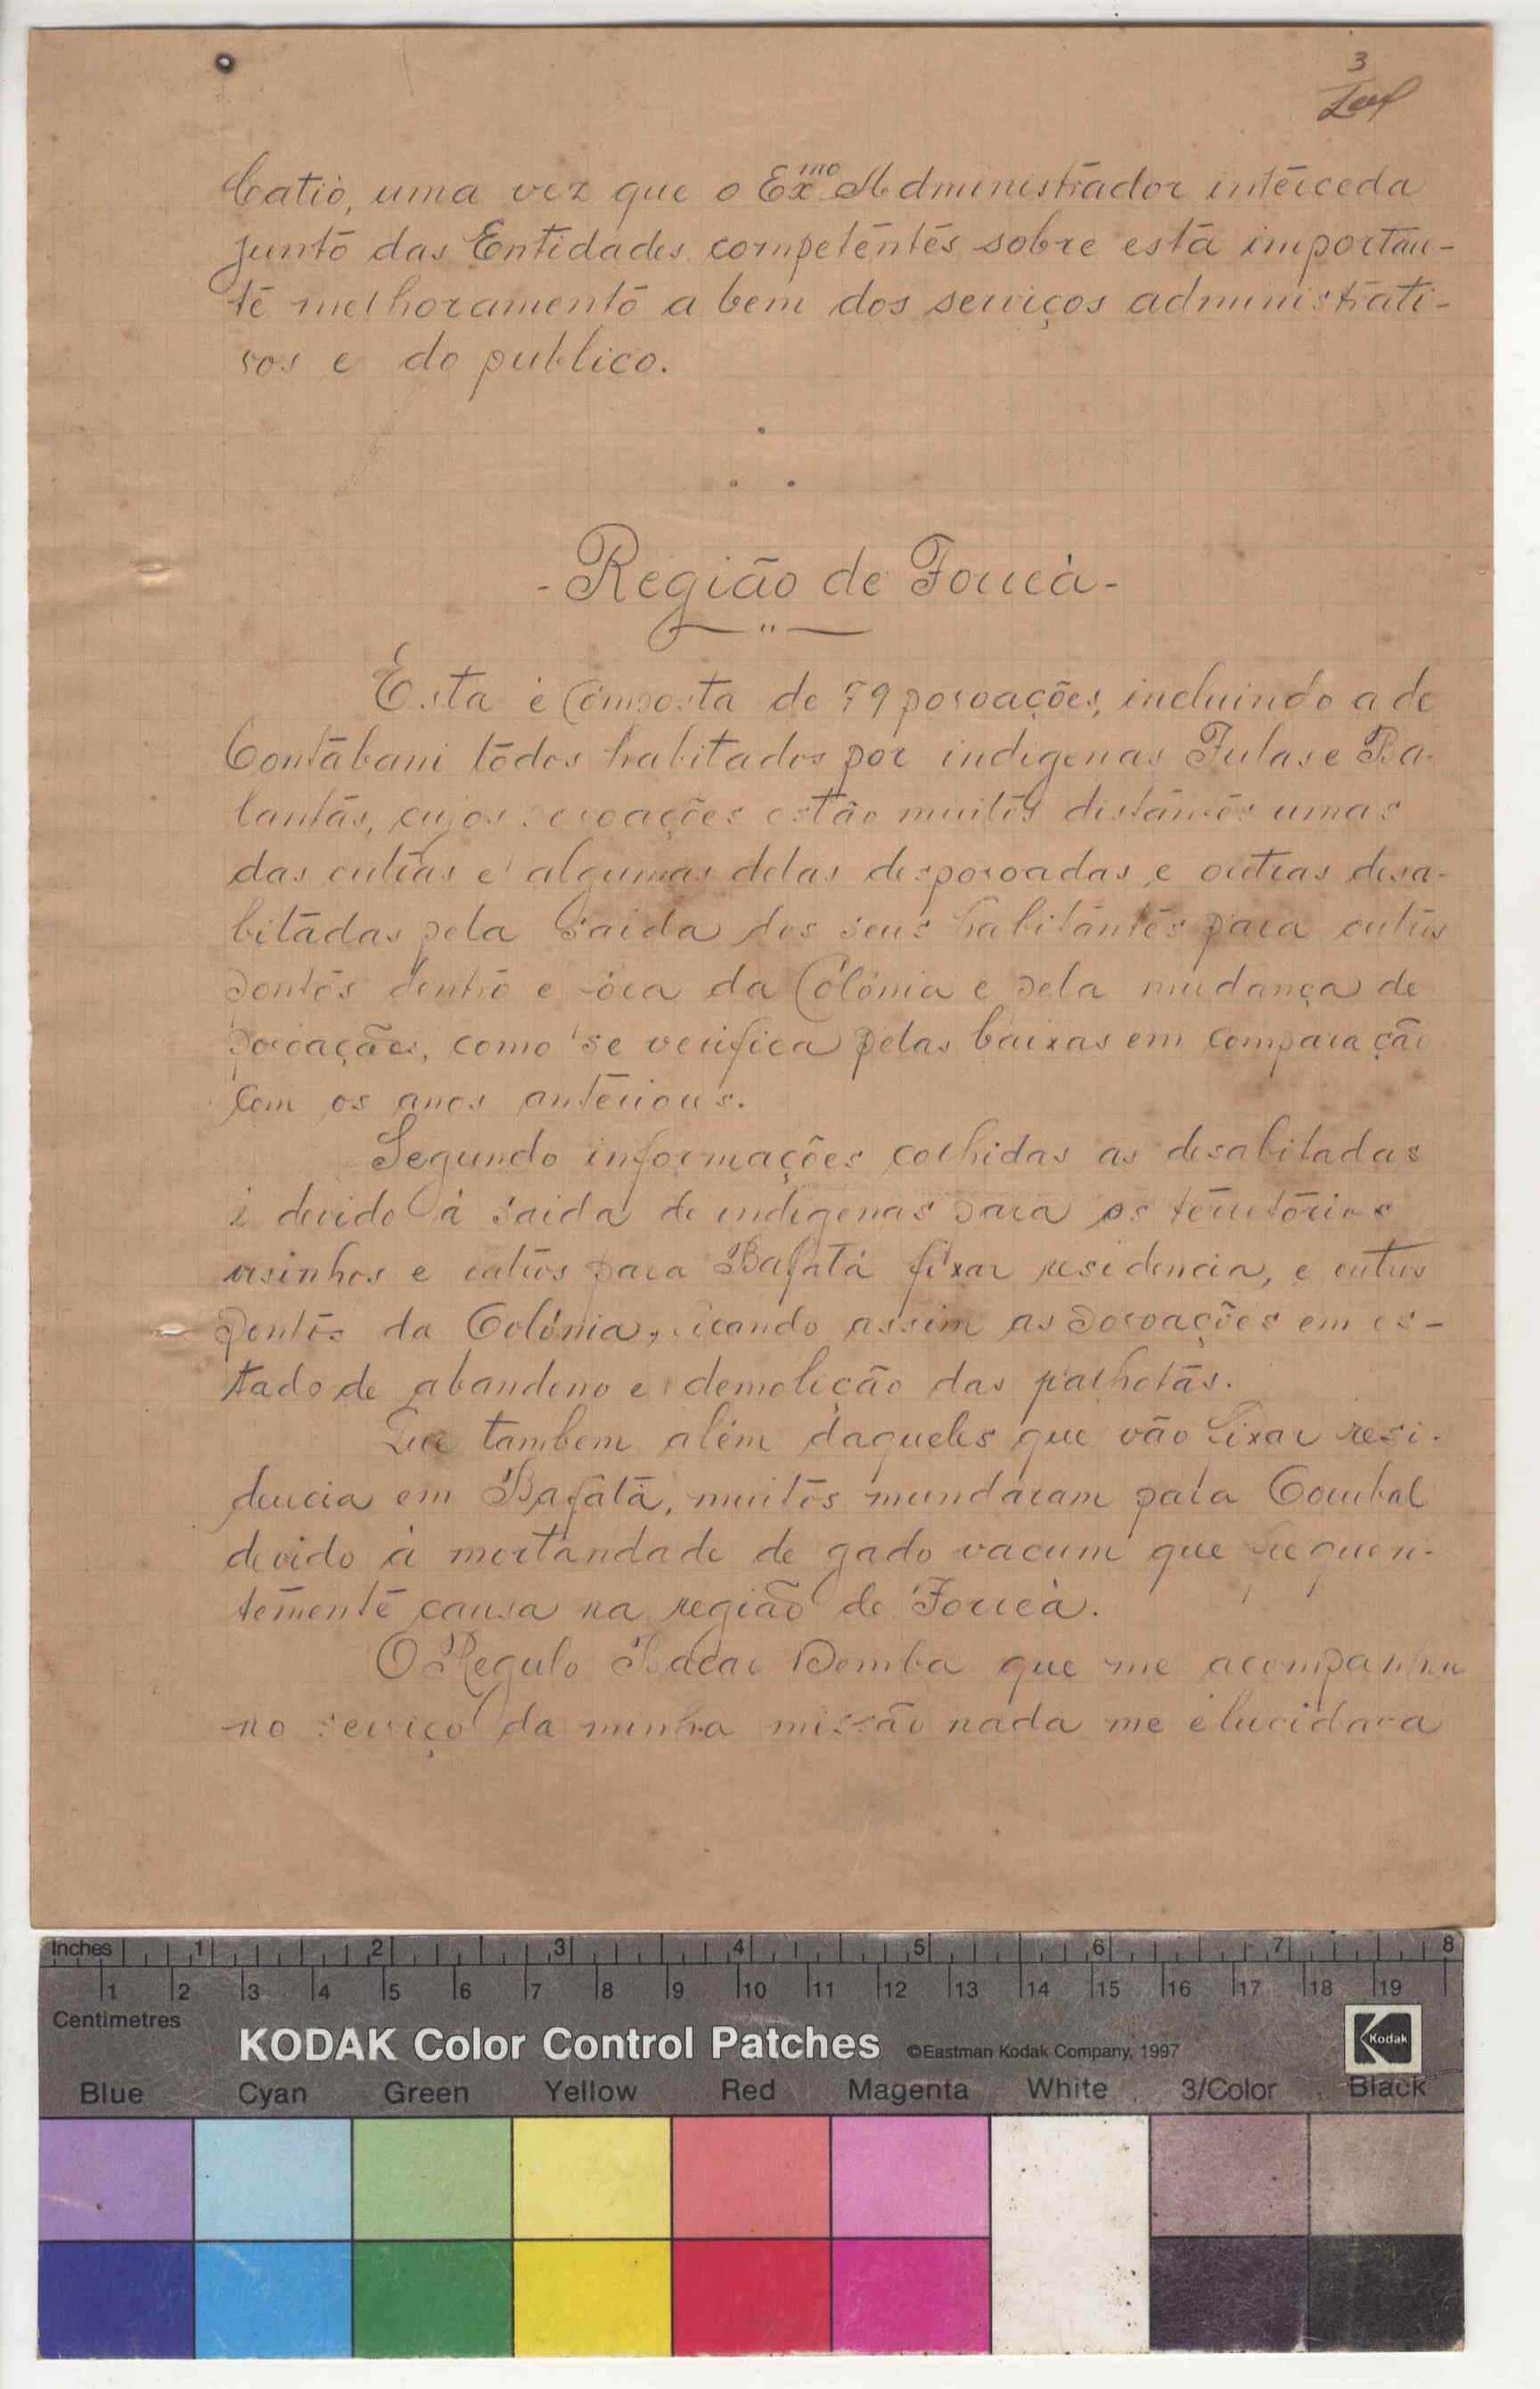 3
Catió, uma vez que o Exmo Administrador interceda
junto das Entidades competentes sobre esta importan-
te melhoramento a bem dos serviços administrati-
vos e do publico.
- Região de Forreá -
Esta é Composta de 79 povoações, incluindo a de
Contabani todos habitados por indigenas Fulas e Ba-
lantas, cujos povoações estão muitos distantes umas
das outras e algumas delas despovoadas e outras desa-
bitadas pela saida dos seus habitantes para outros
pontos dentro e fóra da Colónia e pela mudança de
povoações, como se verifica pelas baixas em comparação
com os anos anteriores.
Segundo informações colhidas as desabitadas
é devido á saida de indigenas para os territórios
visinhos e outros para Bafatá fixar residencia, e outros
pontos da Colónia, ficando assim as povoações em es-
tado de abandono e demolição das palhotas.
Que tambem além daqueles que vão fixar resi-
dencia em Bafatá, muitos mundaram para Corubal
devido á mortandade de gado vacum que frequen-
temente causa na região de Forreá.
O Regulo Bacar Demba que me acompanhou
no serviço da minha missão nada me elucidara
Inches 1 2 3 4 5 6 7 8
1 2 3 4 5 6 7 8 9 10 11 12 13 14 15 16 17 18 19
Centimetres
KODAK Color Control Patches ©Eastman Kodak Company, 1997 Kodak
Blue Cyan Green Yellow Red Magenta White 3/Color Black